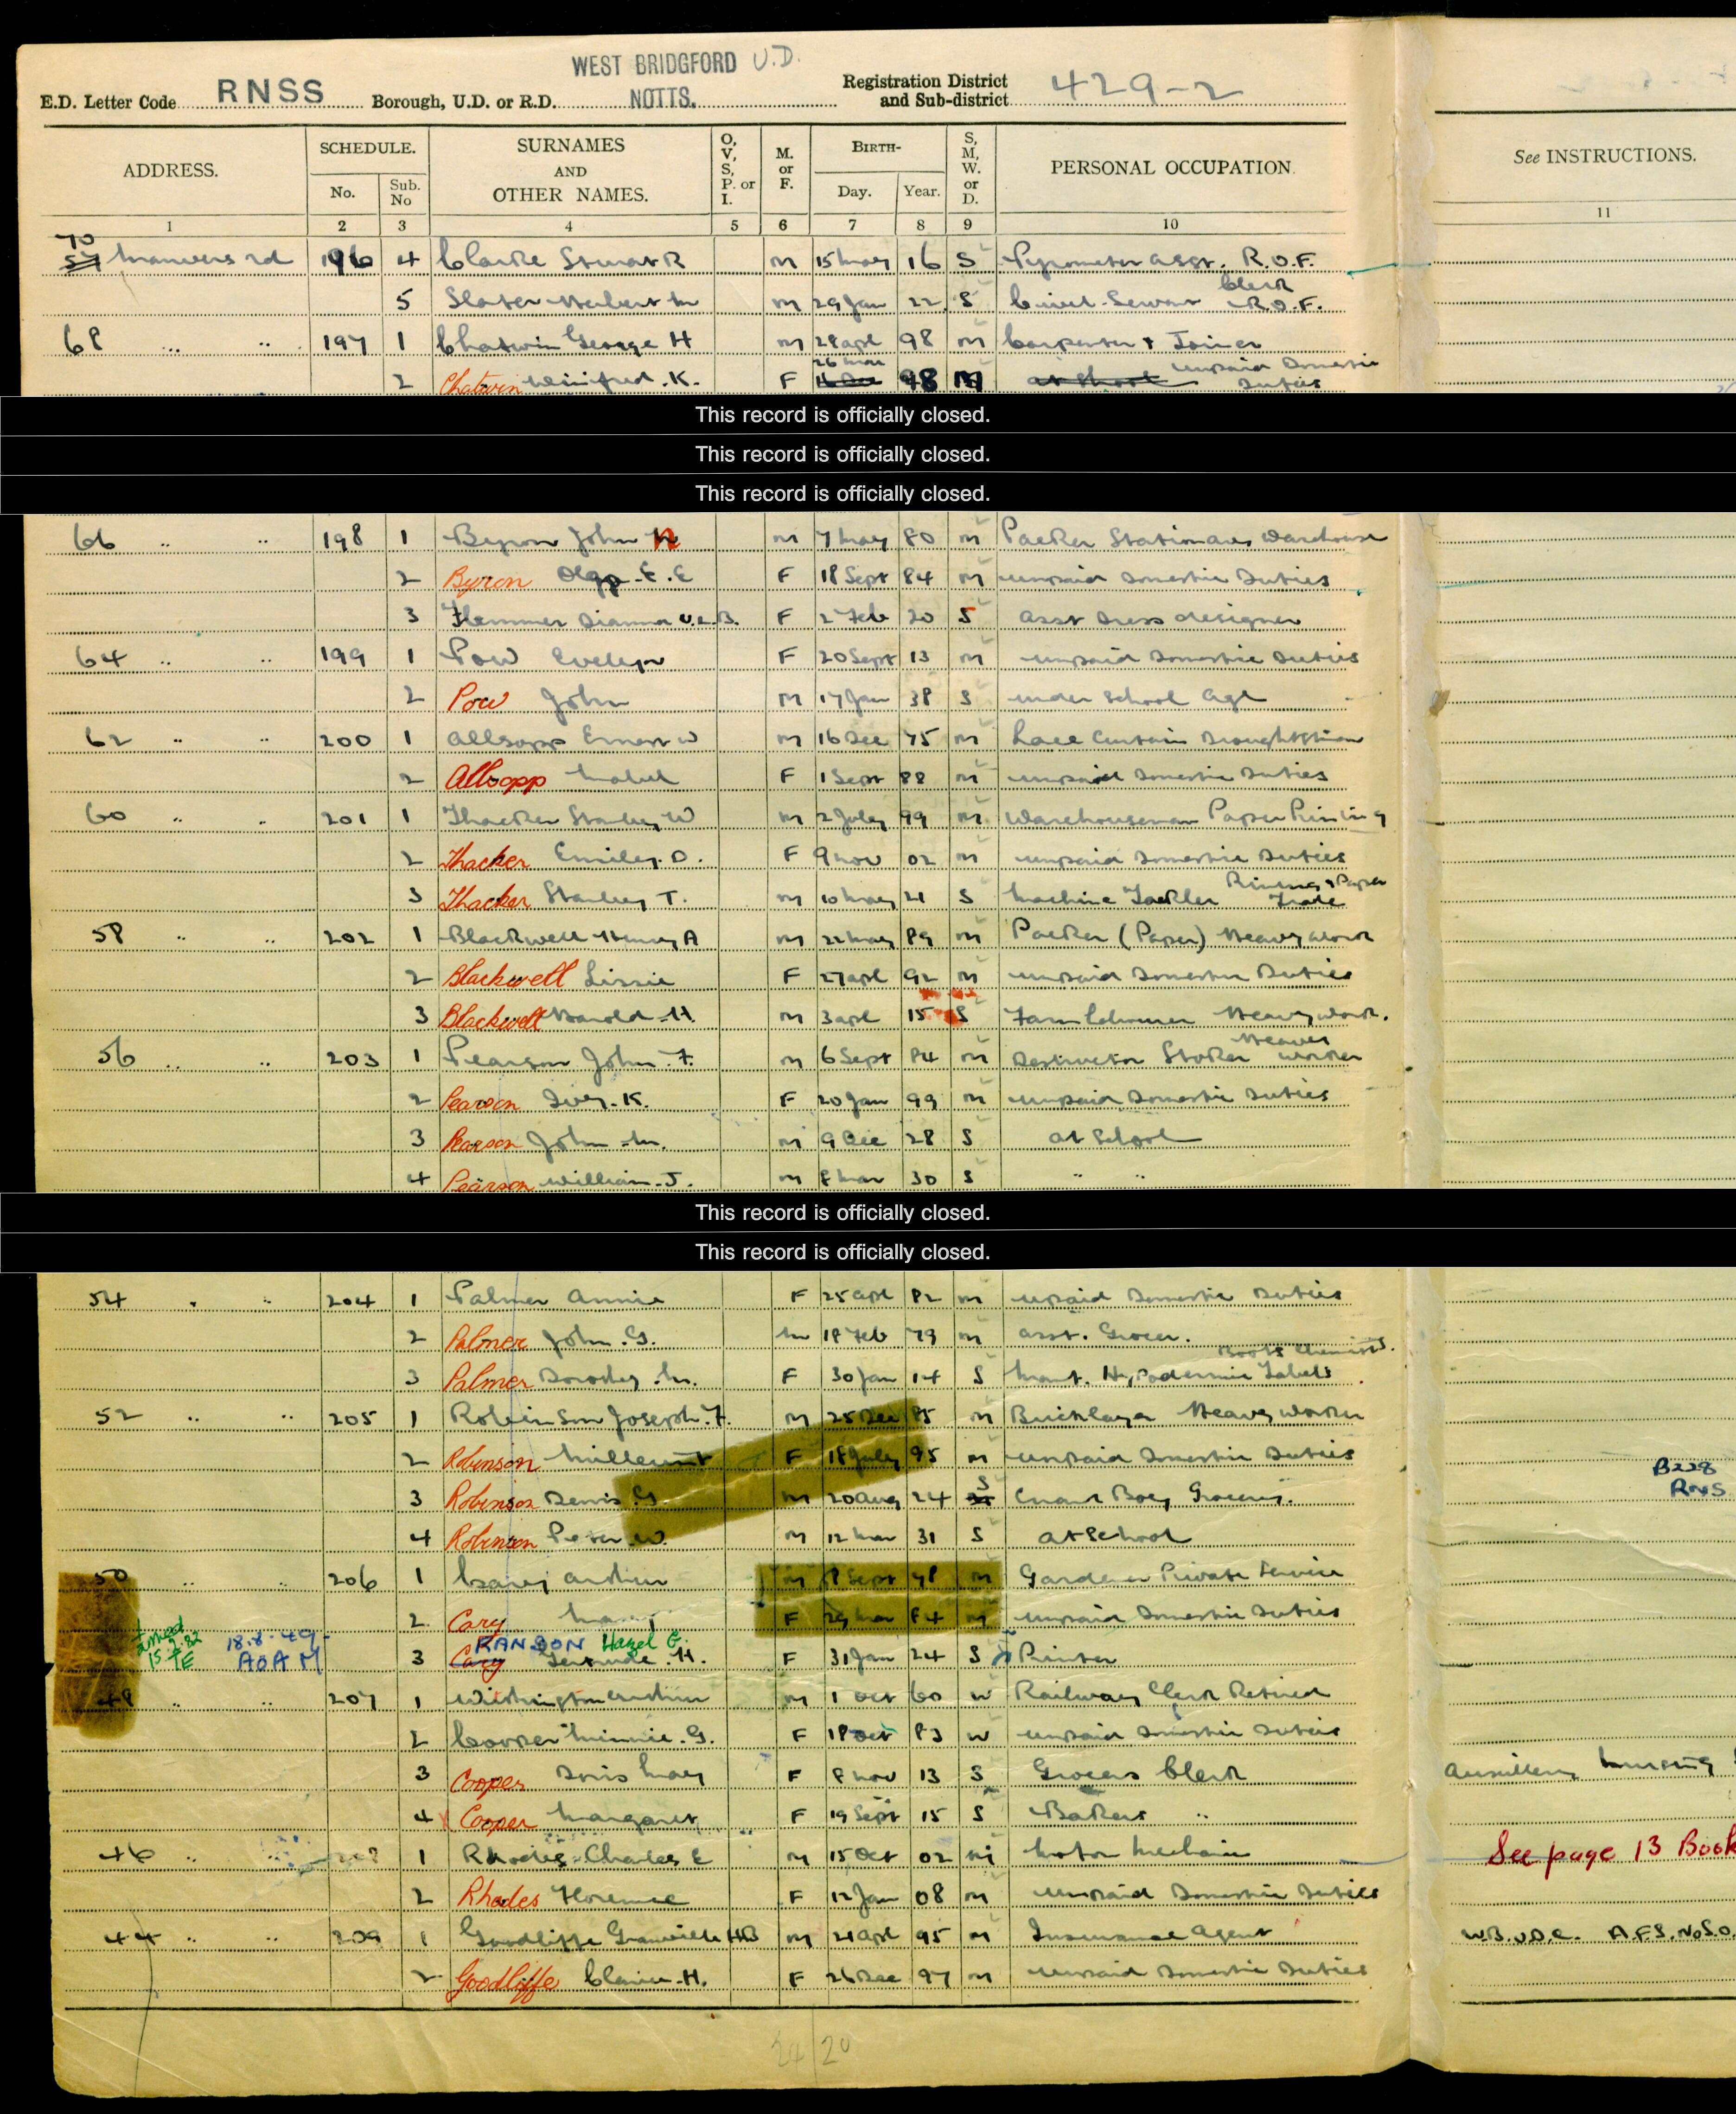 WEST BRIDGFORD U.D.
E.D. Letter Code RNSS Borough, U.D. or R.D. NOTTS. Registration District and Sub-district 429-2
ADDRESS. SCHEDULE. No. Sub. No SURNAMES AND OTHER NAMES. O, V, S, P. or I. M. or F. BIRTH- Day. Year. S, M, W. or D. PERSONAL OCCUPATION. See INSTRUCTIONS.
1 2 3 4 5 6 7 8 9 10 11
70 Manvers rd 196 4 Clarke Stewart R M 15 May 16 S Pyrometer Asst. R.O.F.
5 Slater Herbert M 29 Jan 22 S Civil Servant Clerk R.O.F.
68 .. .. 197 1 Chatwin George H M 28 Apl 98 M Carpenter & Joiner
2 Chatwin Winifred K. F 26 98 M at School Unpaid Domestic Duties
This record is officially closed.
This record is officially closed.
This record is officially closed.
66 .. .. 198 1 Byron John M 7 May 80 M Packer Stationers Warehouse
2 Byron Olga E. E F 18 Sept 84 M Unpaid Domestic Duties
3 Flemmer Dianna V.L.B. F 2 Feb 20 S Asst Dress designer
64 .. .. 199 1 Pow Evelyn F 20 Sept 13 M Unpaid Domestic Duties
2 Pow John M 17 Jan 38 S under School Age
62 .. .. 200 1 Allsopp Ernest W M 16 Dec 75 M Lace Curtain Draughtsman
2 Allsopp Mabel F 1 Sept 88 M Unpaid Domestic Duties
60 .. .. 201 1 Thacker Stanley W M 2 July 99 M Warehouseman Paper
2 Thacker Emiley D. F 9 Nov 02 M Unpaid Domestic Duties
3 Thacker Stanley T. M 10 May 21 S Machine Paper Trade
58 .. .. 202 1 Blackwell Henry A M 22 May 89 M Packer (Paper) Heavy Work
2 Blackwell Lizzie F 27 Apl 92 M Unpaid Domestic Duties
3 Blackwell Harold H. M 3 Apl 15 S Farm Labourer Heavy Work.
56 .. .. 203 1 Pearson John F. M 6 Sept 84 M Destructor Stoker Heavy Worker
2 Pearson Ivy K. F 20 Jan 99 M Unpaid Domestic Duties
3 Pearson John M. M 9 Dec 28 S at School
4 Pearson William J. M 8 Mar 30 S .. ..
This record is officially closed.
This record is officially closed.
54 . .. 204 1 Palmer Annie F 25 Apl 82 M Unpaid Domestic Duties
2 Palmer John G. M 18 Feb 79 M Asst. Grocer.
3 Palmer Dorothy M. F 30 Jan 14 S Manf. Hypodermic Tablets Boots Chemists.
52 .. .. 205 1 Robinson Joseph F. M 25 Dec 85 M Bricklayer Heavy Worker
2 Robinson Millicent F 18 July 95 M Unpaid Domestic Duties
B228
3 Robinson Denis G M 20 Aug 24 S Errand Boy Grocery.
RNS
4 Robinson Peter W. M 12 Mar 31 S at School
50 .. .. 206 1 Carey Arthur M 8 Sept 78 M Gardener Private Service
2 Cary F 29 Mar 84 M Unpaid Domestic Duties
15.9.82 18.8.49 RANSON Hazel G.
AOA M 3 Cary Gertrude H. F 31 Jan 24 S Printer
48 .. .. 207 1 Arthur M 1 Oct 60 W Railway Clerk Retired
2 Cooper Minnie G. F 18 Oct 83 W Unpaid Domestic Duties
3 Cooper Doris May F 8 Nov 13 S Grocers Clerk Auxiliary Nursing
4 Cooper Margaret F 19 Sept 15 S Bakers ..
46 .. 208 1 Rhodes Charles E M 15 Oct 02 M Motor Mechanic See page 13 Book
2 Rhodes Florence F 12 Jan 08 M Unpaid Domestic Duties
44 .. .. 209 1 Goodliffe Granville HB M 21 Apl 95 M Insurance Agent W.B.U.D.C. A.F.S. No S.O.
2 Goodliffe H. F 26 Dec 97 M Unpaid Domestic Duties
24/20